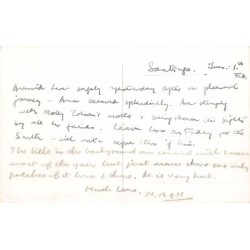 Santiago. Tues. 1st
Feb.
Arrived here safely yesterday after a pleasant
journey - Anna behaved splendidly. Am staying
with Molly mother & being shown the sights
by all her friends. Leave here on Friday for the
South - will write before then if time.
The hills in the background are covered with snow
most of the year but just now there are only
patches of it here & there, as is very hot.
Much love,